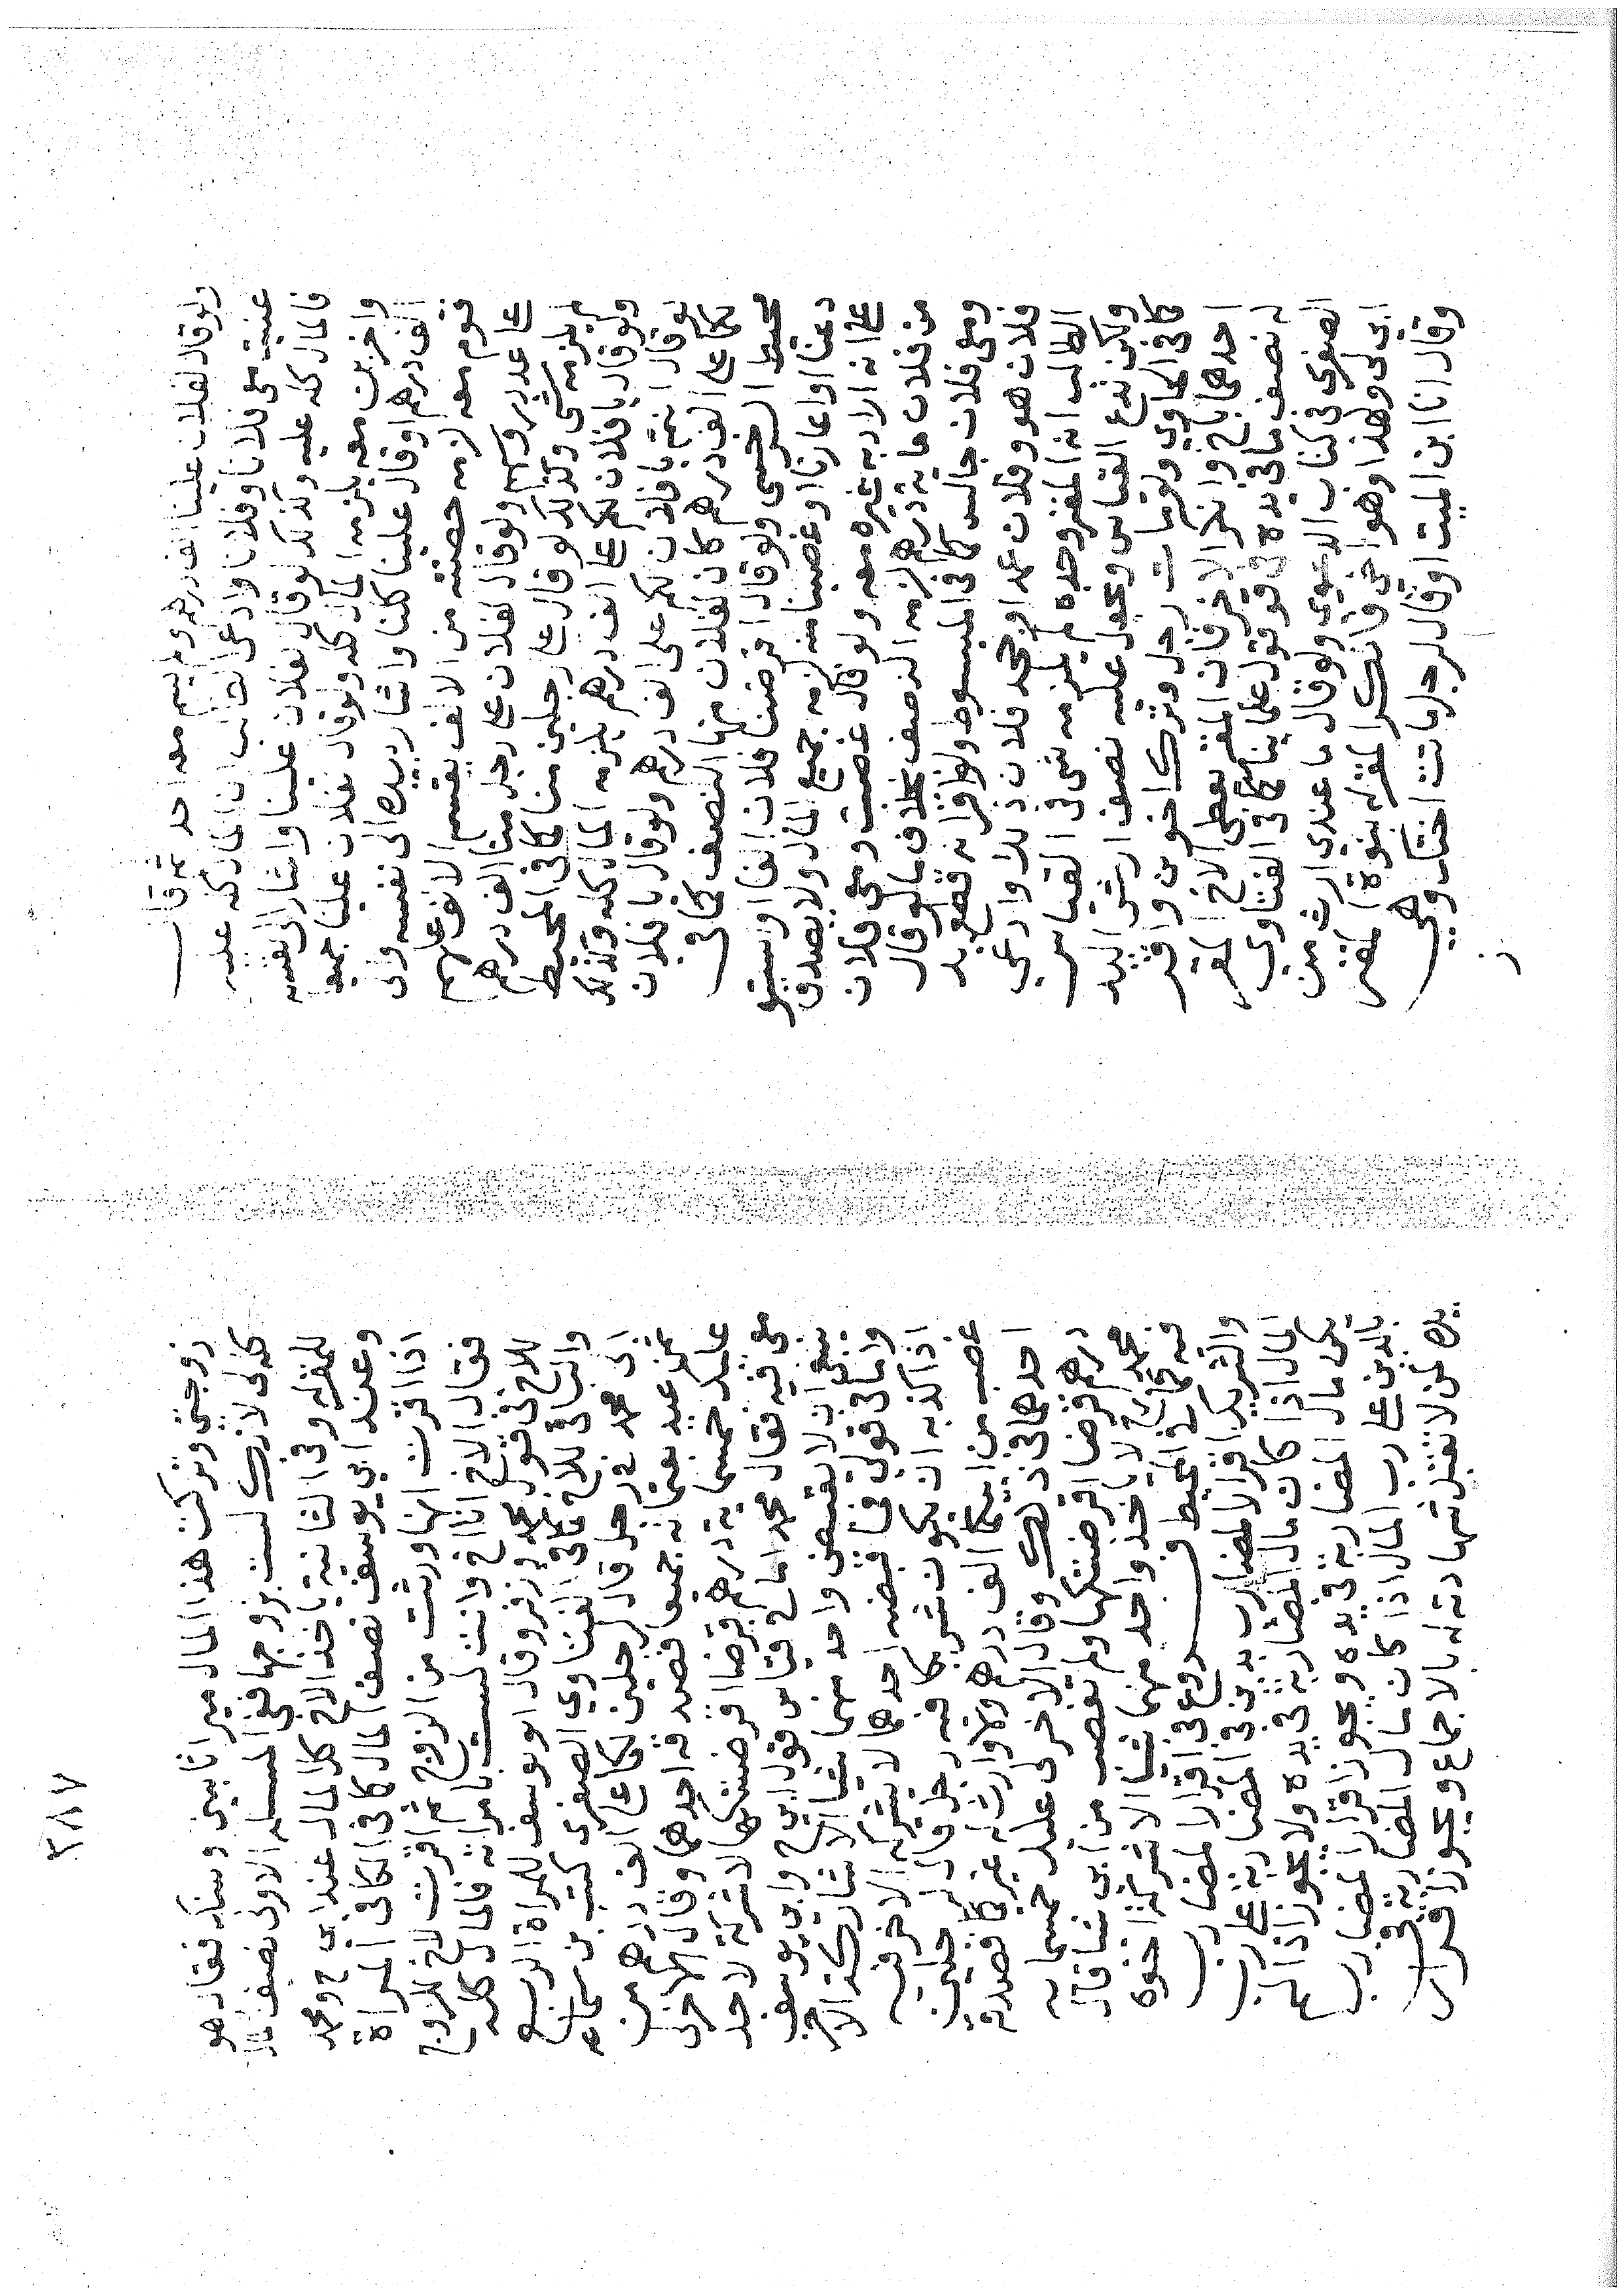 ولوقال لفلان علينا الف درهم ولم يسم معه احد ثم قال
عنيت معي فلانا وفلانا وادعى الطالب ان المال كله عليه
فالمال كله عليه وكذلك لوقال لفلان علينا واشار الى نفسه
واخرين معه يلزمه المال كله ولوقال لفلان علينا جميعا
الف درهم اوقال علينا كلنا واشار بيده الى نفسه والى
قوم معه لزمه حصته من الالف يقسم الالف عليهم
على عدد رؤسهم ولوقال لفلان على رجل منا الف درهم
لم يلزمه شي وكذلك لو قال على رجلين منا كما في المحيط
ولوقال يا فلان لكم على الف درهم يلزمه المال كله وكذلك
لوقال انتم يا فلان لكم على الف درهم ولوقال يا فلان
لكما على الف درهم كان لفلان منها النصف كما في
محيط السرخسي ولوقال اقرضنا فلان الفا او استو
دعنا او اعارنا او غصبنا منه لزمه جميع المال ولا يصدق
على انه اراد به غيره معه ولو قال غصبت ومعي فلان
من فلان ماية درهم لزمه النصف بخلاف مالوقال
ومعي فلان جالس كما في المبسوط ولواقر انه قطع يد
فلان هو وفلان عمدا وجحد فلان ذلك وادعى
الطالب انه المقر وحده لم يلزمه شي في القياس
ولكن ندع القياس ويجعل عليه نصف ارش اليد
كما في الحاوي ولومات رجل وترك اخوين واقر
احدهما باخ وانكر الاخر فان المقر يعطي الاخ المقر
له نصف ما في يده في قول علمائنا كما في الفتاوي
الصغرى في كتاب الدعوى ولوقال ما عندي ارث من
ابي لي ولهذا وهو اخي فانكر المقر له بنوة المقر
وقال انا ابن الميت اوقال لرجل ماتت اختك وهي
زوجتي وتركت هذا المال ميراثا بيني وبينك فقال هو
كله لي لانك لست بزوجها ففي المسله الاولى نصف المال
للمقر له وفي الثانية ياخذ الاخ كل المال عند ابي ح ومحمد
وعند ابي يوسف نصف المال كما في الكافي المراة
اذا اقرت انها ورثت من الزوج ثم اقرت لاخ الزوج
فقال الاخ انا اخ وانت لست بامراته فالمال كله
للاخ في قول محمد وزفر وقال ابو يوسف للمراة الربع
والباقي للاخ كما في الفتاوي الصغرى كتب بن سماعه
الى محمد في رجل قال لرجلين لكما علي الف درهم من
ثمن عبد بعتمانيه جميعا فصدقه احدهما وقال الاخر
عليك خمسماية درهم قرضا اقرضتكها لا شركة لاحد
معي فيه فقال محمد اما في قياس قول ابي ح وابي يوسف
ينبغي ان لا يقبض واحد منهما شيا الا شاركه الاخر
واما في قولي فما قبضه احدهما لا يشركه الاخر فيه
اذا كذبه ان يكون شريكا فيه رجل قال لرجلين
غصب من ابيكما الف درهم ولا وارث له غيركما فصدقه
احدهما في ذلك وقال الاخر لي عليك خمسماية
درهم قرضا اقرضتكها ولم يغصب من ابي شيا قال
محمد لا ياخذ واحد منهما شيا الا شركه اخوه
فيه كما في المحيط ف روع في اقرار المضارب
والشريك اقرار المضارب بدين في المضاربة على رب
المال اذا كان مال المضاربة في يده ولا يجوز اذا لم
يكن مال المضاربة في يده ويجوز اقرار المضارب
بالدين على رب المال اذا كان مال المضاربة في
يده لمن لا تقبل شهادته له بالاجماع ويجوز اقرار
٢٨٨٧